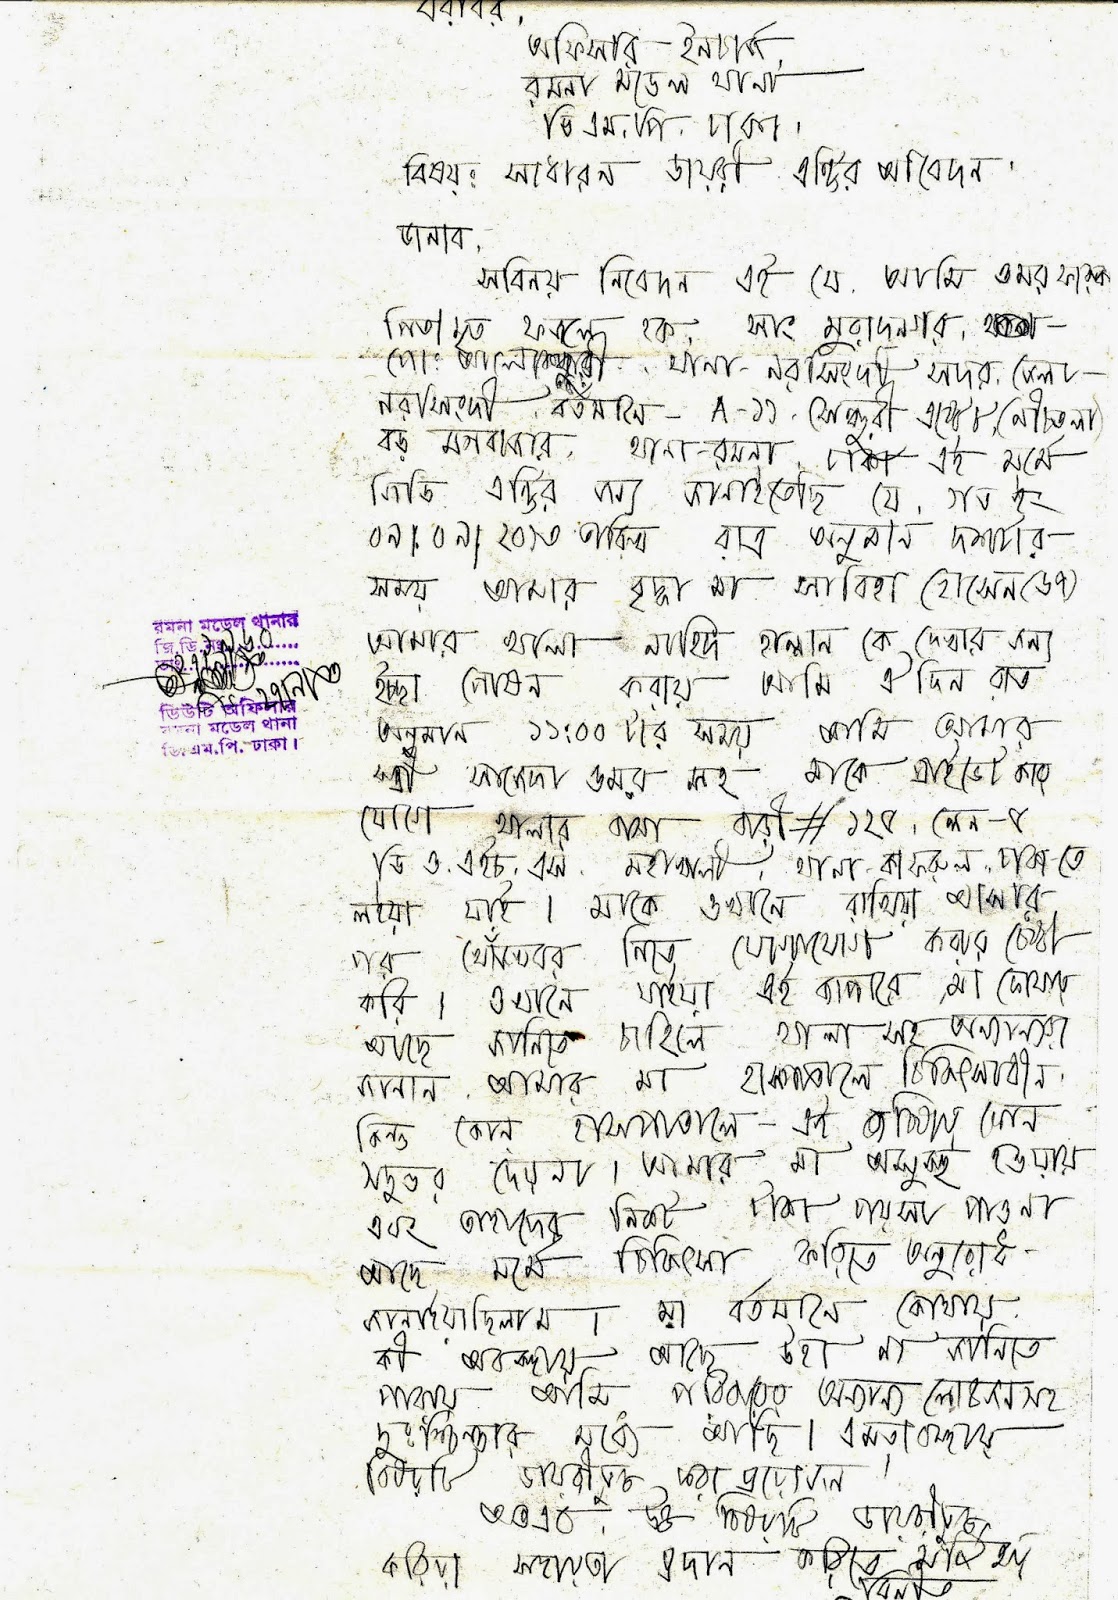 বরাবর,
অফিসার ইনচার্জ,
রমনা মডেল থানা
ডি এম.পি. ঢাকা।
বিষয়: সাধারন ডায়রী এন্ট্রির আবেদন।
জনাব,
সবিনয় নিবেদন এই যে, আমি ওমর ফারুক
পিতা মৃত ফজলে হক, সাং মুরাদনগর,
পো: আলোকবালী, থানা- নরসিংদী সদর, জেলা-
নরসিংদী, বর্তমানে- A-১১, এস্টেট, (নীচতলা)
বড় মগবাজার, থানা-রমনা, ঢাকা এই মর্মে
জিডি এন্ট্রির জন্য জানাইতেছি যে, গত ইং
০৯/০৯/২০১৩ তারিখ রাত্র অনুমান দশটার
সময় আমার বৃদ্ধা মা সাবিহা হোসেন (৬৭)
আমার খালা নাহিদ হান্নান কে দেখার জন্য
ইচ্ছা পোষন করায় আমি ঐ দিন রাত
অনুমান ১১:০০ টার সময় আমি আমার
স্ত্রী সাজেদা ওমর সহ মাকে প্রাইভেট কার
যোগে খালার বাসা বাড়ী # ১২৫, লেন-৫
ডি ও.এইচ.এস. মহাখালী, থানা-কাফরুল, ঢাকা তে
লইয়া যাই। মাকে ওখানে রাখিয়া আসার
পর খোঁজখবর নিতে যোগাযোগ করার চেষ্টা
করি। ওখানে যাইয়া এই ব্যাপারে মা কোথায়
আছে জানিতে চাহিলে খালা সহ অন্যান্যরা
জানান আমার মা হাসপাতালে চিকিৎসাধীন।
কিন্তু কোন্ হাসপাতালে - এই ব্যাপারে কোন
সদুত্তর দেয় না। আমার মা অসুস্থ হওয়ায়
এবং তাহাদের নিকট টাকা পয়সা পাওনা
আছে মর্মে চিকিৎসা করিতে অনুরোধ-
জানাইয়াছিলাম। মা বর্তমানে কোথায়
কী অবস্থায় আছে উহা না জানিতে
পারায় আমি পরিবারের অন্যান্য লোকজন সহ
দু:শ্চিন্তার মধ্যে আছি। এমতাবস্থায়
বিষয়টি ডায়রীভুক্ত করা প্রয়োজন।
অতএব, উক্ত বিষয়টি ডায়রীভুক্ত
করিয়া সহায়তা প্রদান করিতে মর্জি হয়
বিনীত
রমনা মডেল থানার
জি.ডি নং
ডিউটি অফিসার
রমনা মডেল থানা
ডি.এম.পি. ঢাকা।